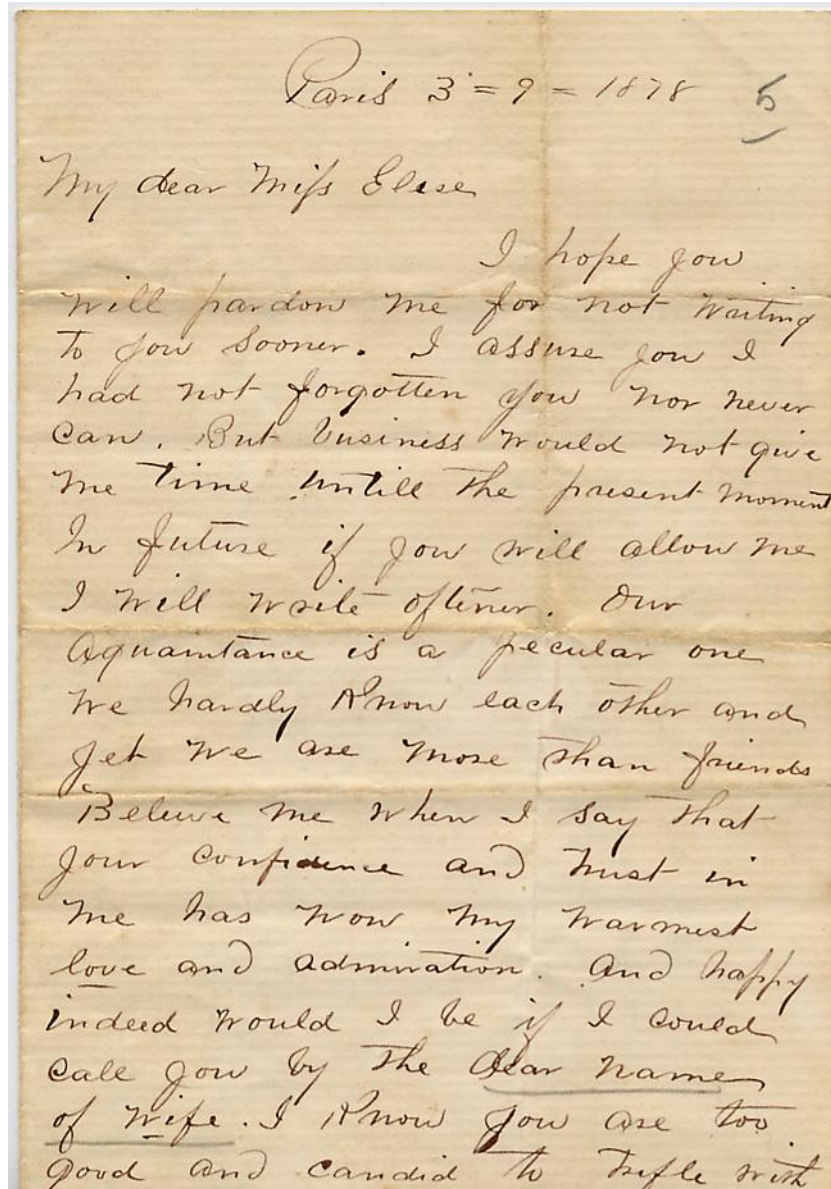 Paris 3 = 9 = 1878 5
My dear Miss Elise
I hope you
will pardon me for not writing
to you sooner. I assure you I
had not forgotten you nor never
can. But business would not give
me time untill the present moment
In future if you will allow me
I will write oftener. Our
Aquaintance is a pecular one
We hardly Know each other and
yet we are more than friends
Beleive me when I say that
your confidence and trust in
me has won my warmest
love and admiration. And happy
indeed would I be if I could
call you by the dear name
of wife. I Know you are too
good and candid to trifle with